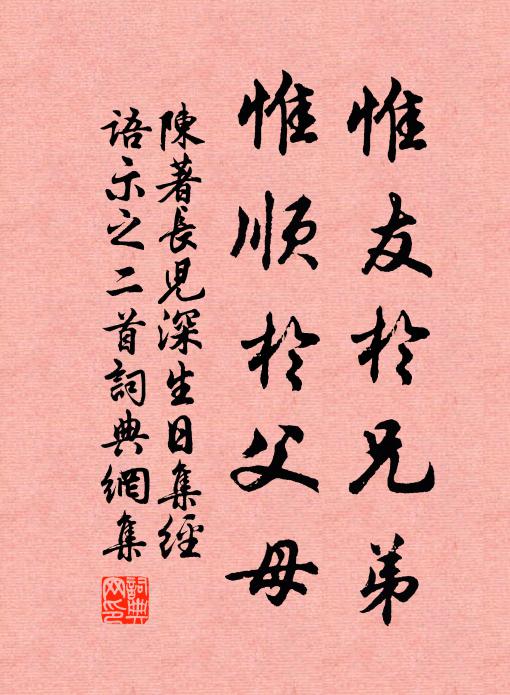 惟友於兄弟
惟順於父母
陳著長児深生日集經
語示之二首詞典網集
詞典網印